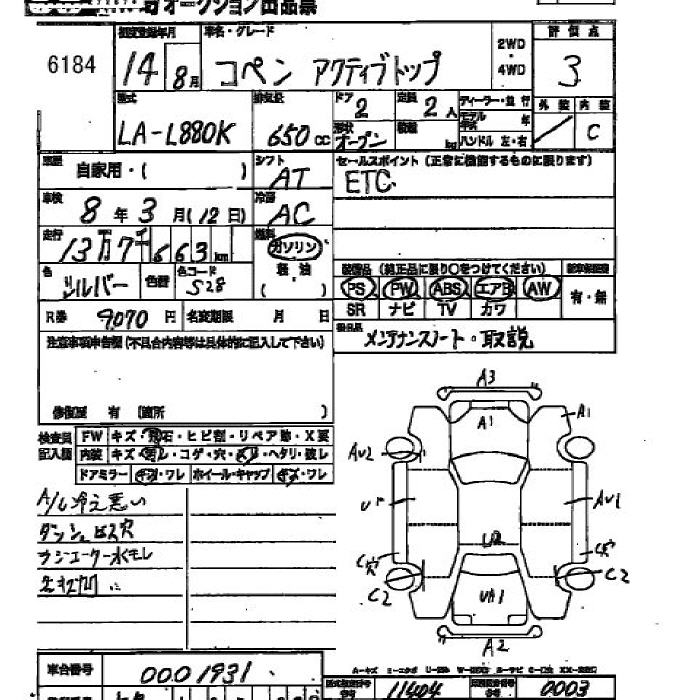 オークション出品票
6184
初度登録年月 車名・グレード 2WD・4WD 評価点
14 8月 コペン アクティブトップ 3
型式 排気量 ドア 定員 ディーラー・並行 外装 内装
LA-L880K 650cc 2 2人 モデル 年 C
形状 オープン 積載 kg ハンドル 左・右
車歴 自家用・( ) シフト AT セールスポイント(正常に機能するものに限ります)
ETC
車検 8年3月(12日) 冷房 AC
走行 13万7千663km 燃料 ガソリン 軽油 ( )
装備品(純正品に限り○をつけてください)
色 シルバー 色替 色コード S28
PS PW ABS エアB AW 有・無
SR ナビ TV カワ
R券 9070円 名変期限 月 日
メンテナンスノート・取説
注意事項申告欄(不具合内容等は具体的に記入して下さい)
修復歴 有 (箇所 )
検査員記入欄 FW キズ・飛石・ヒビ割・リペア跡・X要
内装 キズ・汚レ・コゲ・穴・スレ・ヘタリ・破レ
ドアミラー キズ・ワレ ホイール・キャップ キズ・ワレ
A/C冷え悪い
ダッシュビス穴
ラジエーター水モレ
A3
A1
A1
AU2
AU1
C穴
C穴
C2
C2
UA1
A2
車台番号 0001931
11404
0003